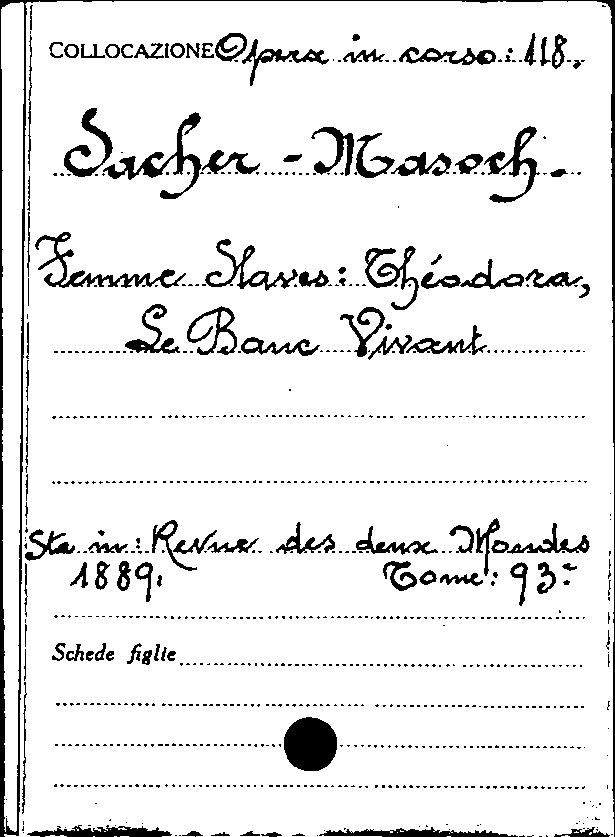 COLLOCAZIONE Opera in corso: 118.
Sacher-Masoch.
Femme Slaves: Théodora,
Le Banc Vivant
Sta in: Revue des deux Mondes
1889. Tome: 93=
Schede figlie